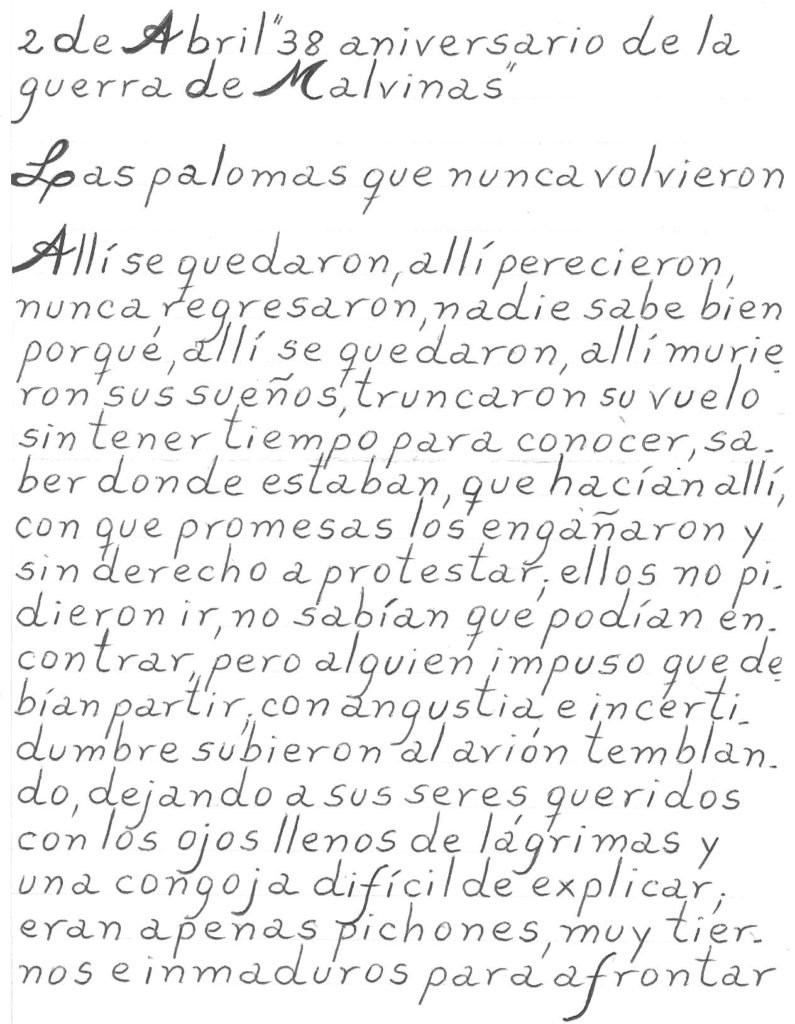 2 de Abril "38 aniversario de la
guerra de Malvinas"
Las palomas que nunca volvieron
Allí se quedaron, allí perecieron,
nunca regresaron, nadie sabe bien
porqué, allí se quedaron, allí murie
ron sus sueños, truncaron su vuelo
sin tener tiempo para conocer, sa-
ber donde estaban, que hacían allí,
con que promesas los engañaron y
sin derecho a protestar; ellos no pi-
dieron ir, no sabían que podían en-
contrar, pero alguien impuso que de
bían partir; con angustia e incerti-
dumbre subieron al avión temblan-
do, dejando a sus seres queridos
con los ojos llenos de lágrimas y
una congoja difícil de explicar;
eran apenas pichones, muy tier-
nos e inmaduros para afrontar